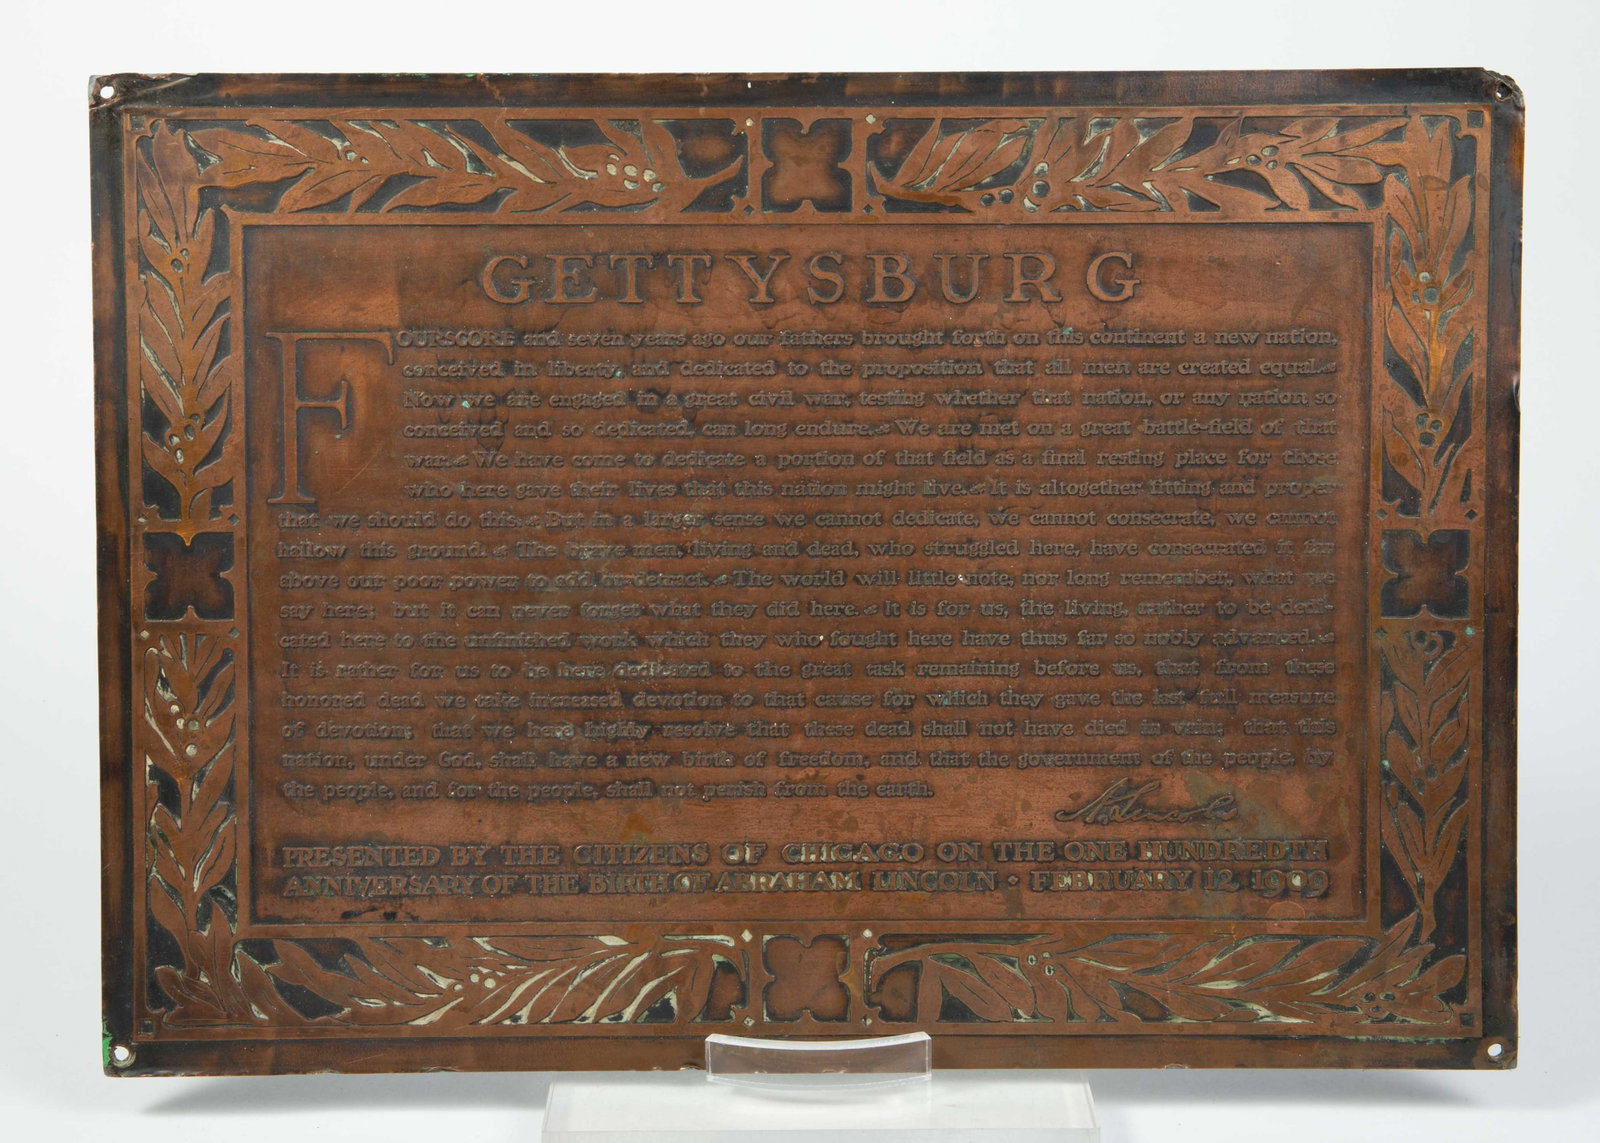 GETTYSBURG
FOURSCORE and seven years ago our fathers brought forth on this continent a new nation,
conceived in liberty, and dedicated to the proposition that all men are created equal.
Now we are engaged in a great civil war, testing whether that nation, or any nation so
conceived and so dedicated, can long endure. We are met on a great battle-field of that
war. We have come to dedicate a portion of that field as a final resting place for those
who here gave their lives that this nation might live. It is altogether fitting and proper
that we should do this. But in a larger sense we cannot dedicate, we cannot consecrate, we cannot
hallow this ground. The brave men, living and dead, who struggled here, have consecrated it far
above our poor power to add or detract. The world will little note, nor long remember, what we
say here; but it can never forget what they did here. It is for us, the living, rather to be dedi-
cated here to the unfinished work which they who fought here have thus far so nobly advanced.
It is rather for us to be here dedicated to the great task remaining before us, that from these
honored dead we take increased devotion to that cause for which they gave the last full measure
of devotion; that we here highly resolve that these dead shall not have died in vain; that this
nation, under God, shall have a new birth of freedom, and that the government of the people, by
the people, and for the people, shall not perish from the earth.
A. Lincoln
PRESENTED BY THE CITIZENS OF CHICAGO ON THE ONE HUNDREDTH
ANNIVERSARY OF THE BIRTH OF ABRAHAM LINCOLN · FEBRUARY 12, 1909